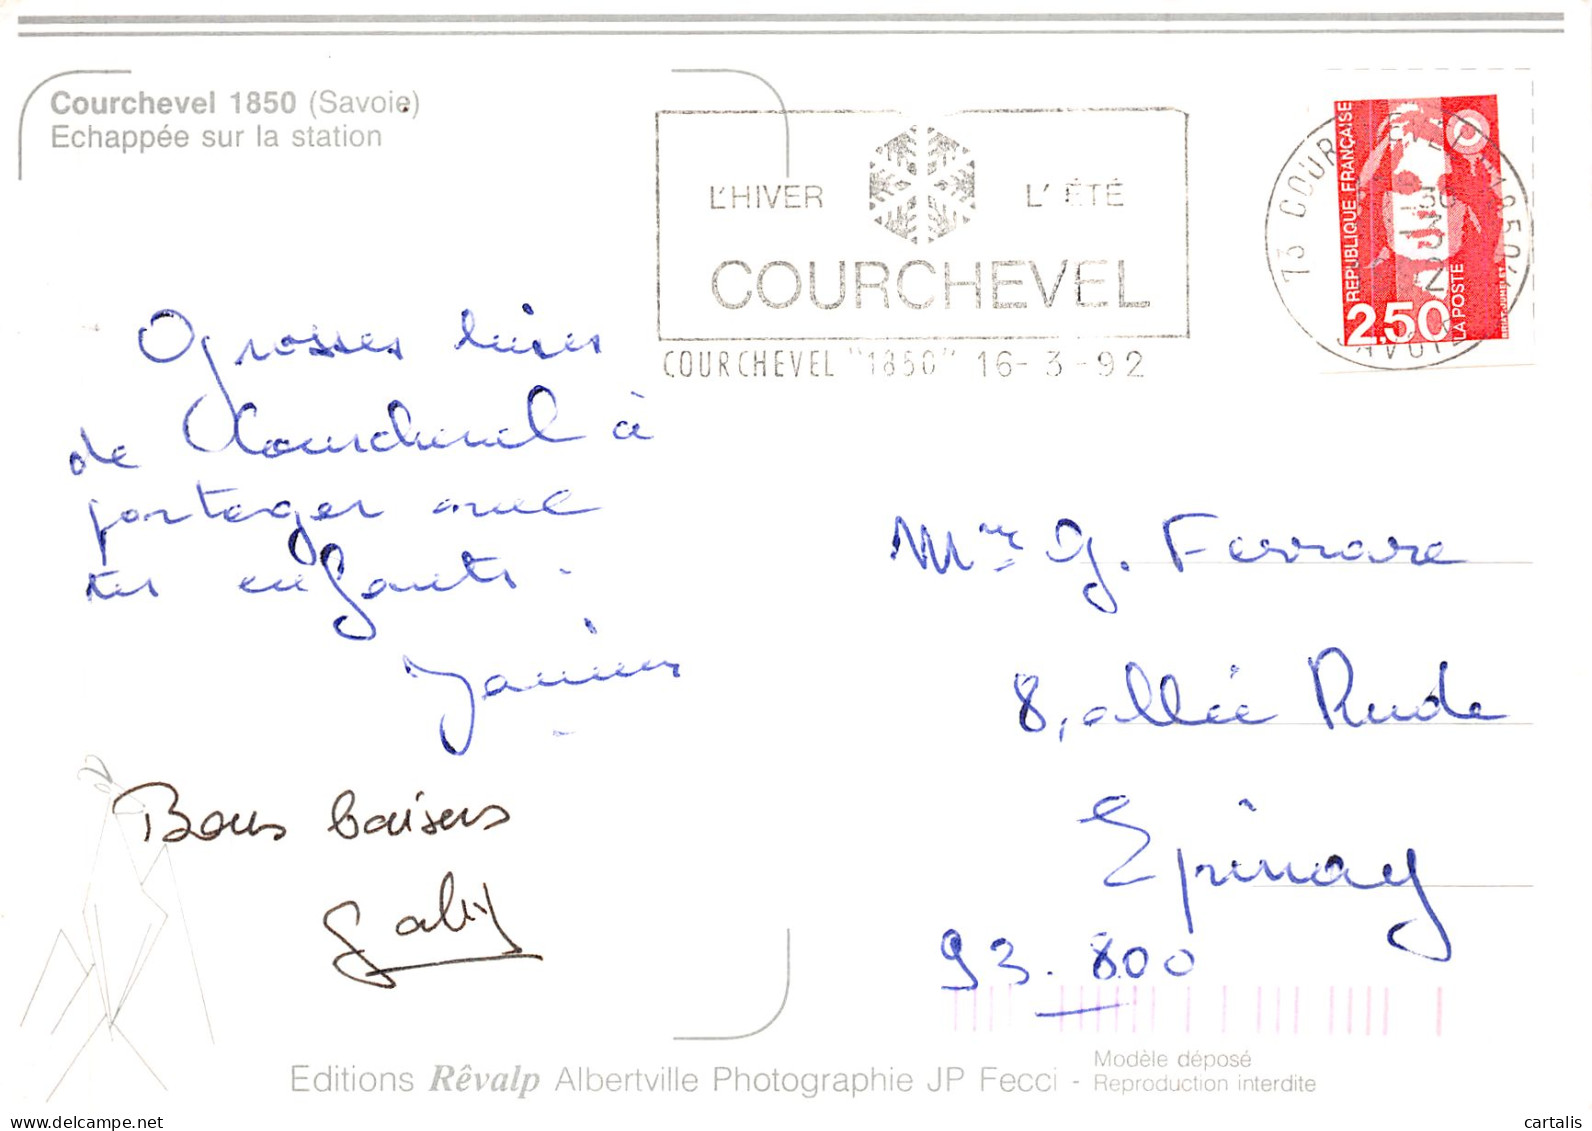 Courchevel 1850 (Savoie)
Echappée sur la station
L'HIVER L'ÉTÉ
COURCHEVEL
COURCHEVEL "1850" 16-3-92
RÉPUBLIQUE FRANÇAISE
2,50
LA POSTE
grosses bises
de Courchevel à
partager avec
tes enfants.
Bons baisers
Gaby
Mme G. Ferrare
8, allée Rude
Epinay
93.800
Editions Rêvalp Albertville Photographie JP Fecci -
Modèle déposé
Reproduction interdite
cartalis